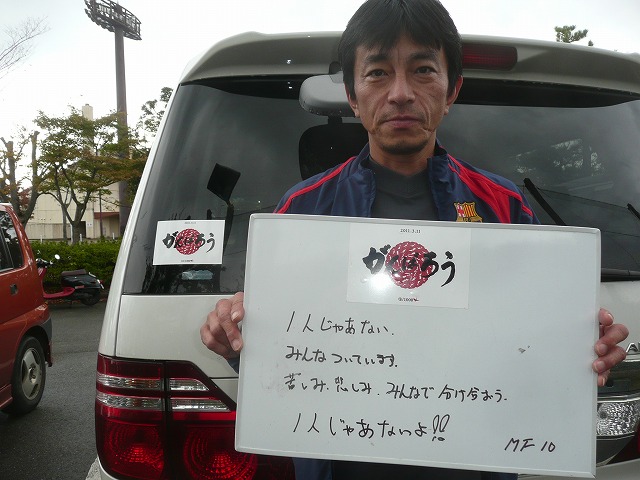 がんばろう
2011.3.11
がんばろう
1人じゃあない.
みんなついています.
苦しみ.悲しみ.みんなで分け合おう.
1人じゃあないよ!!
MF 10